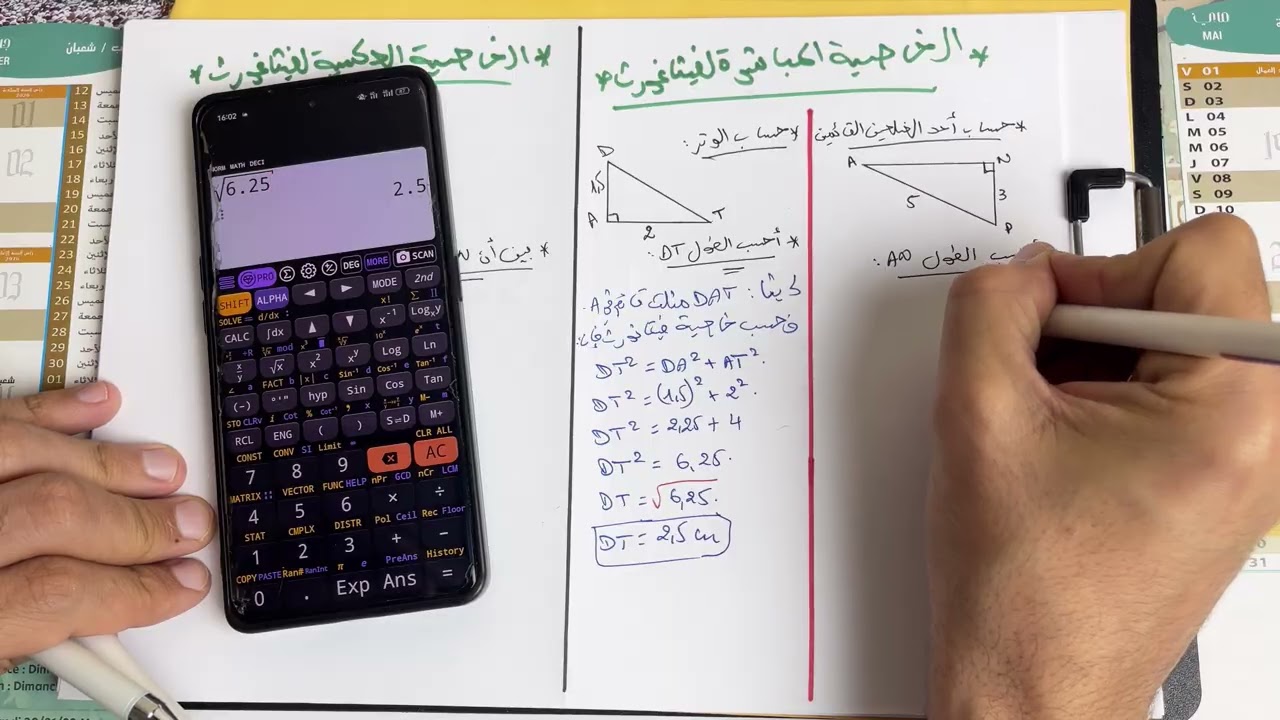 * الخاصية المباشرة لفيثاغورث *
* حساب أحد الضلعين القائمين
A
N
5
3
P
أحسب الطول AN :
* حساب الوتر :
D
1,5
A
2
T
* أحسب الطول DT :
لدينا : DAT مثلث قائم في A.
فحسب خاصية فيثاغورث فإن:
DT² = DA² + AT².
DT² = (1,5)² + 2².
DT² = 2,25 + 4
DT² = 6,25.
DT = √6,25.
DT = 2,5 cm
* الخاصية العكسية لفيثاغورث *
* بين أن
16:02
NORM MATH DECI
√6.25
2.5
PRO
DEG
MORE
SCAN
SHIFT
ALPHA
MODE
2nd
SOLVE = d/dx :
x! Σ Π
CALC ∫dx x⁻¹ Logₓy
√x x² xʸ Log Ln
FACT
Sin⁻¹ Cos⁻¹ Tan⁻¹
(-) °'" hyp Sin Cos Tan
STO CLRv
RCL ENG ( ) S⇔D M+
CONST CONV SI Limit
CLR ALL
7 8 9 AC
MATRIX VECTOR FUNC HELP nPr GCD nCr LCM
4 5 6 × ÷
STAT CMPLX DISTR Pol Ceil Rec Floor
1 2 3 + −
COPY PASTE Ran# RanInt π e PreAns History
0 . Exp Ans =
شعبان
12
13
14
15
16
17
18
19
20
21
22
23
24
25
26
27
28
29
30
01
ماي
MAI
V 01
S 02
D 03
L 04
M 05
M 06
J 07
V 08
S 09
D 10
31